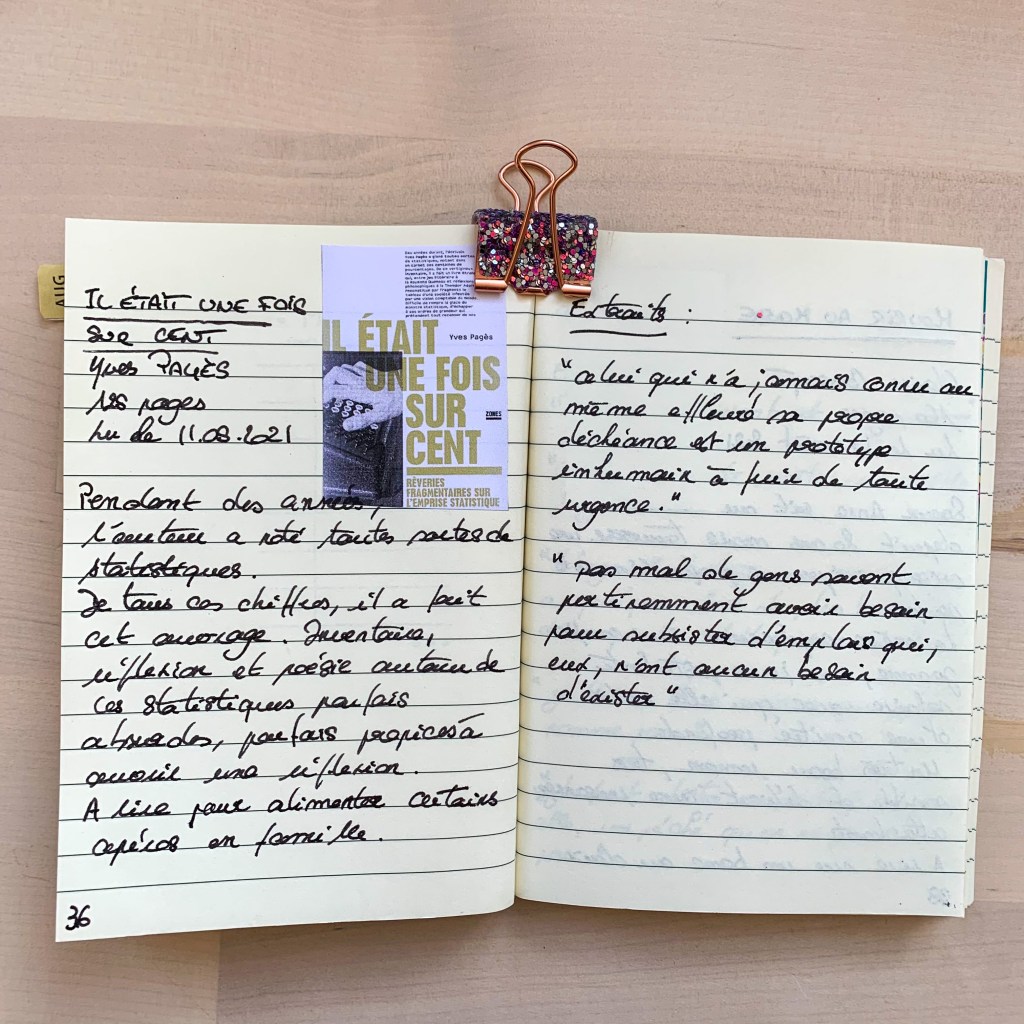 AUG
IL ÉTAIT UNE FOIS
SUR CENT
Yves PAGÈS
128 pages
Lu le 11.08.2021
Pendant des années,
l'auteur a noté toutes sortes de
statistiques.
De tous ces chiffres, il a fait
cet ouvrage. Inventaire,
réflexion et poésie autour de
ces statistiques parfois
absurdes, parfois propices à
ouvrir une réflexion.
A lire pour alimenter certains
apéros en famille.
36
Yves Pagès
IL ÉTAIT
UNE FOIS
SUR
CENT
ZONES
RÊVERIES
FRAGMENTAIRES SUR
L'EMPRISE STATISTIQUE
Extraits :
"Celui qui n'a jamais connu ou
même effleuré sa propre
déchéance est un prototype
inhumain à fuir de toute
urgence."
"Pas mal de gens savent
pertinemment avoir besoin
pour subsister d'emplois qui,
eux, n'ont aucun besoin
d'exister"